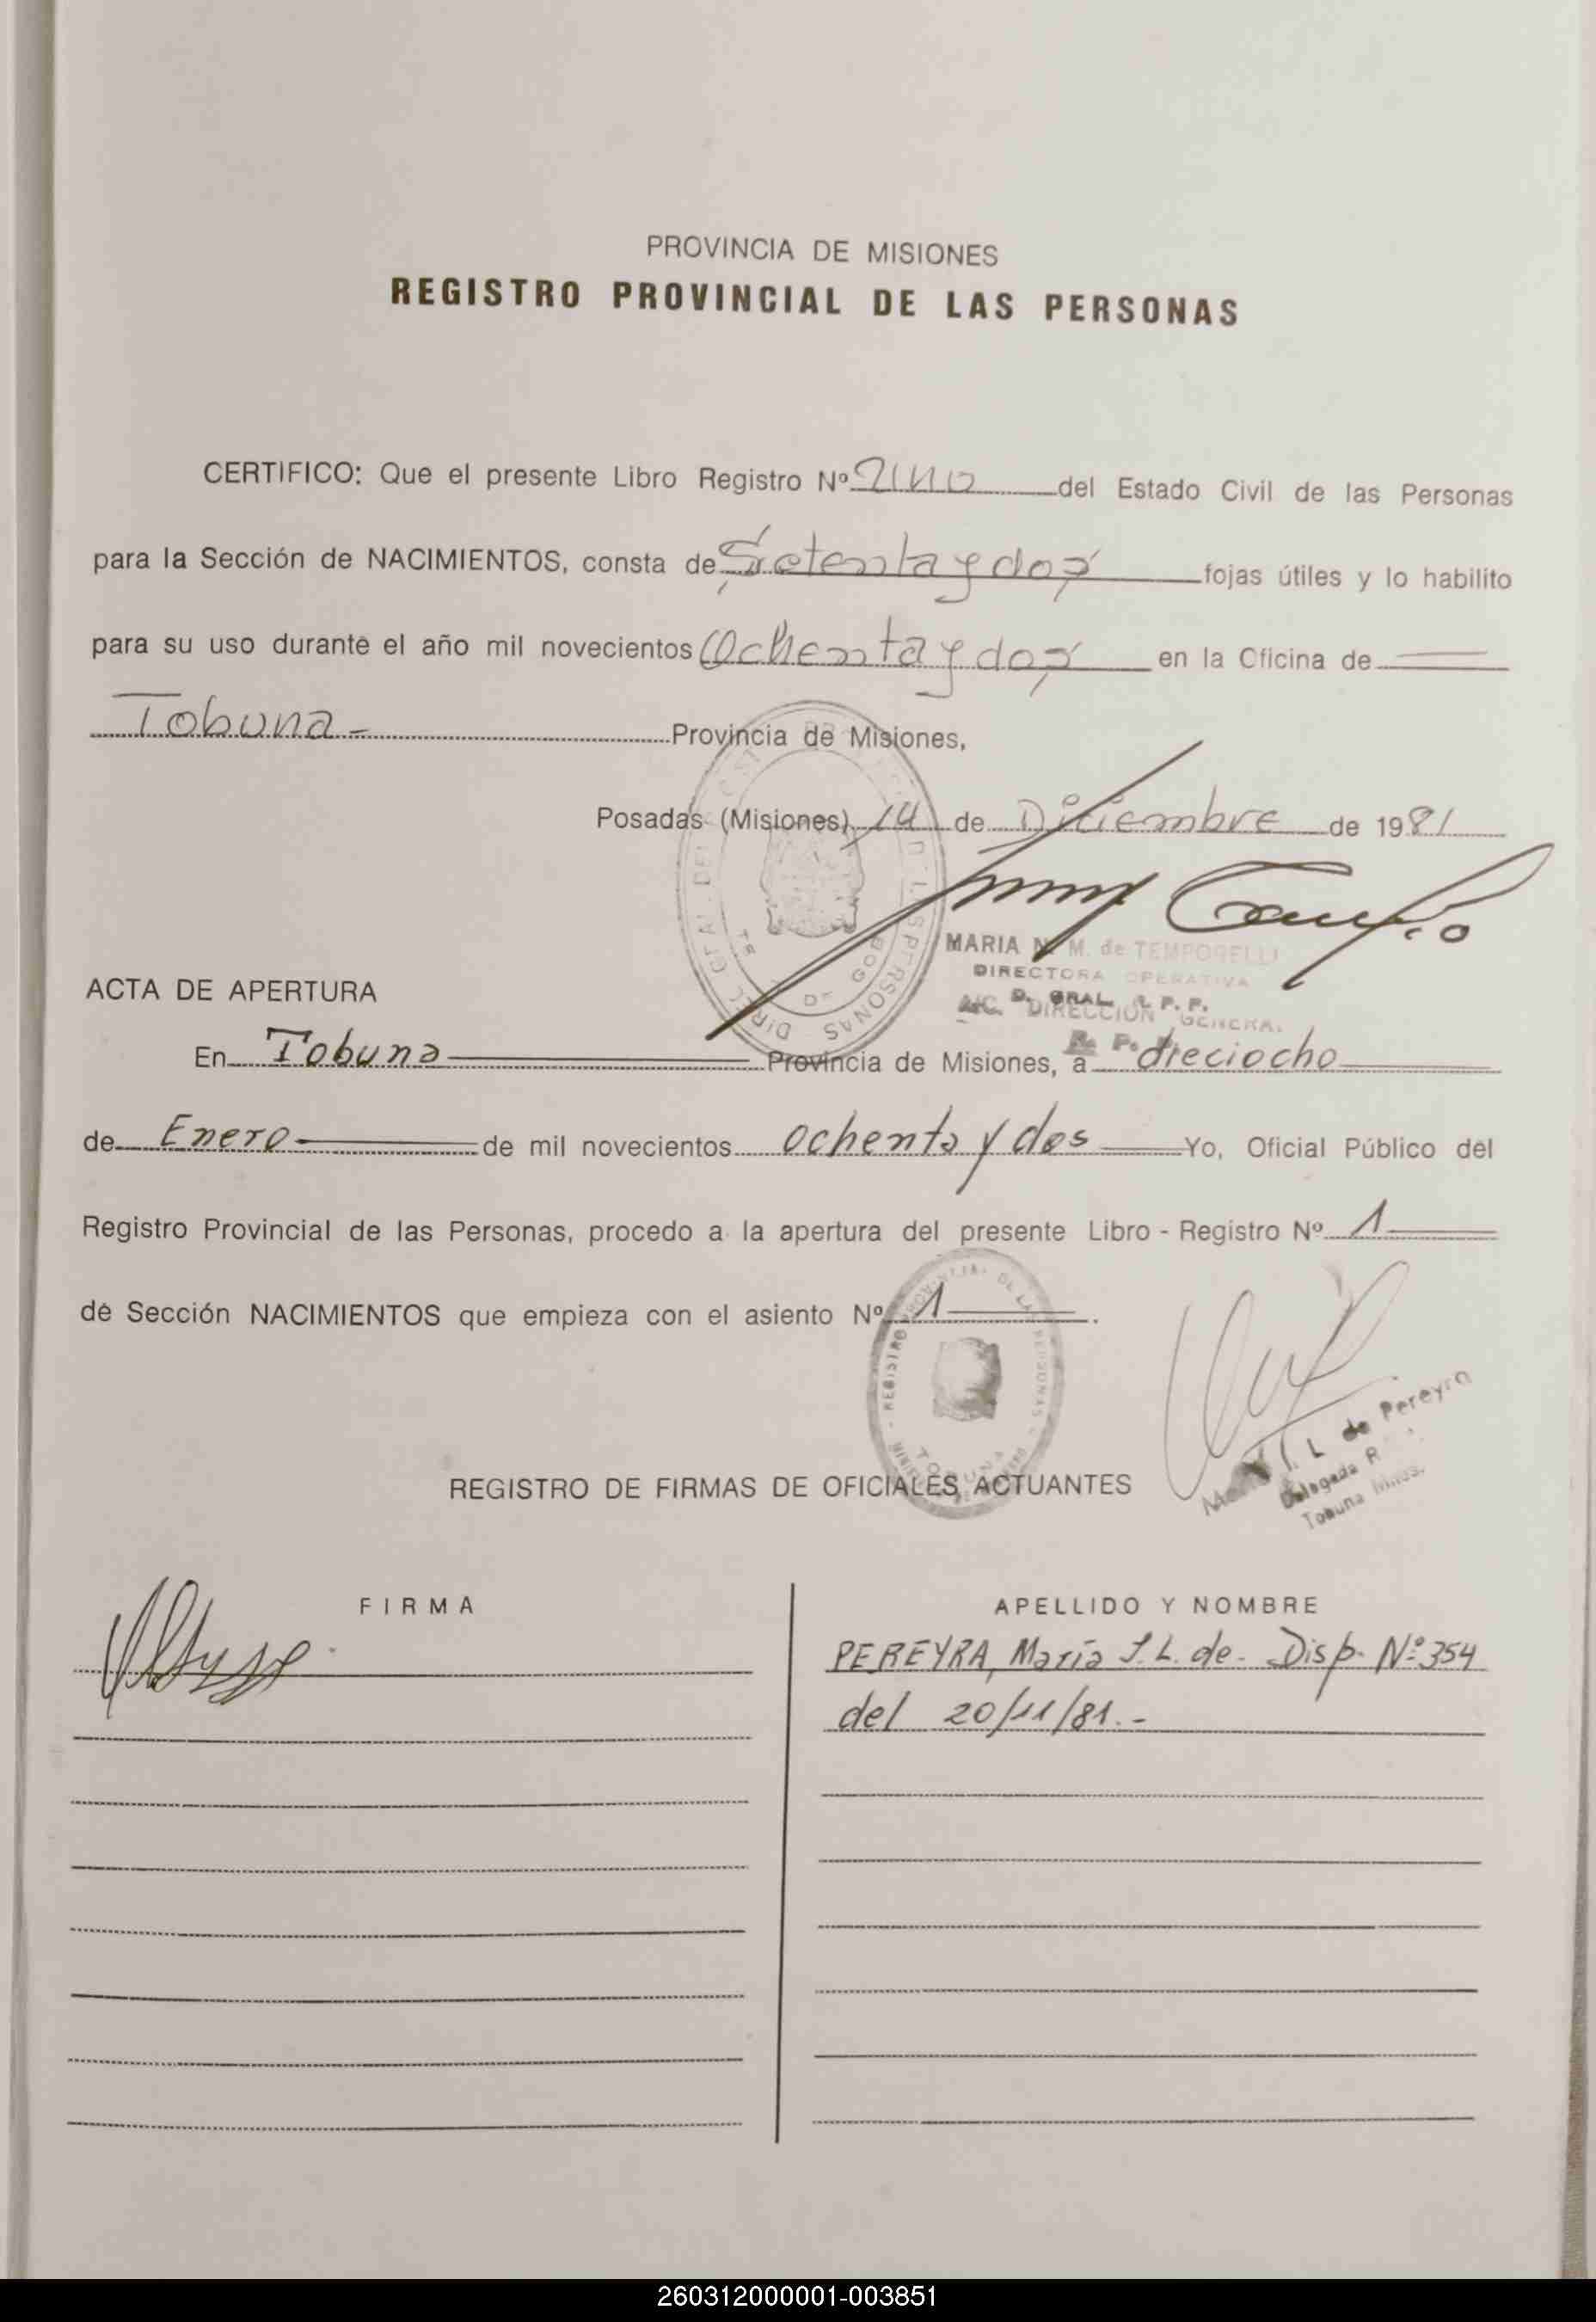 PROVINCIA DE MISIONES
REGISTRO PROVINCIAL DE LAS PERSONAS
CERTIFICO: Que el presente Libro Registro Nº uno del Estado Civil de las Personas
para la Sección de NACIMIENTOS, consta de Setenta y dos fojas útiles y lo habilito
para su uso durante el año mil novecientos Ochenta y dos en la Oficina de
Tobuna - Provincia de Misiones,
Posadas (Misiones), 14 de Diciembre de 1981
MARIA N. M. de TEMPORELLI
DIRECTORA OPERATIVA
A/C. DIRECCION GENERAL
ACTA DE APERTURA
En Tobuna Provincia de Misiones, a dieciocho
de Enero de mil novecientos ochenta y dos Yo, Oficial Público del
Registro Provincial de las Personas, procedo a la apertura del presente Libro - Registro Nº 1
de Sección NACIMIENTOS que empieza con el asiento Nº 1.
L de Pereyra
Delegada R
Tobuna Mnes.
REGISTRO DE FIRMAS DE OFICIALES ACTUANTES
FIRMA
APELLIDO Y NOMBRE
PEREYRA, María I. L. de - Disp. Nº 354
del 20/11/81.-
260312000001-003851